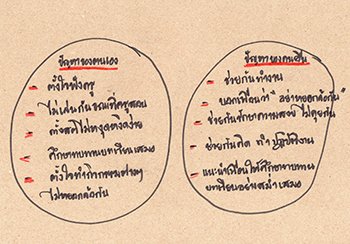 ปัญหาของตนเอง
ตั้งใจฟังครู
ไม่เล่นกันขณะที่ครูสอน
ตั้งสติไม่หงุดหงิดง่าย
ศึกษาทบทวนบทเรียนเสมอ
ตั้งใจทำการงานต่างๆ
ไม่ทอดกล้วกัน
ปัญหาของคนอื่น
ช่วยกันทำงาน
บอกเพื่อนว่า "อย่าทอดกล้วกัน"
ช่วยกันรักษาความสงบ ไม่คุยกัน
ช่วยกันคิด ทำ ปฏิบัติงาน
แนะนำเพื่อนให้ศึกษาทบทวน
บทเรียนอย่างสม่ำเสมอ